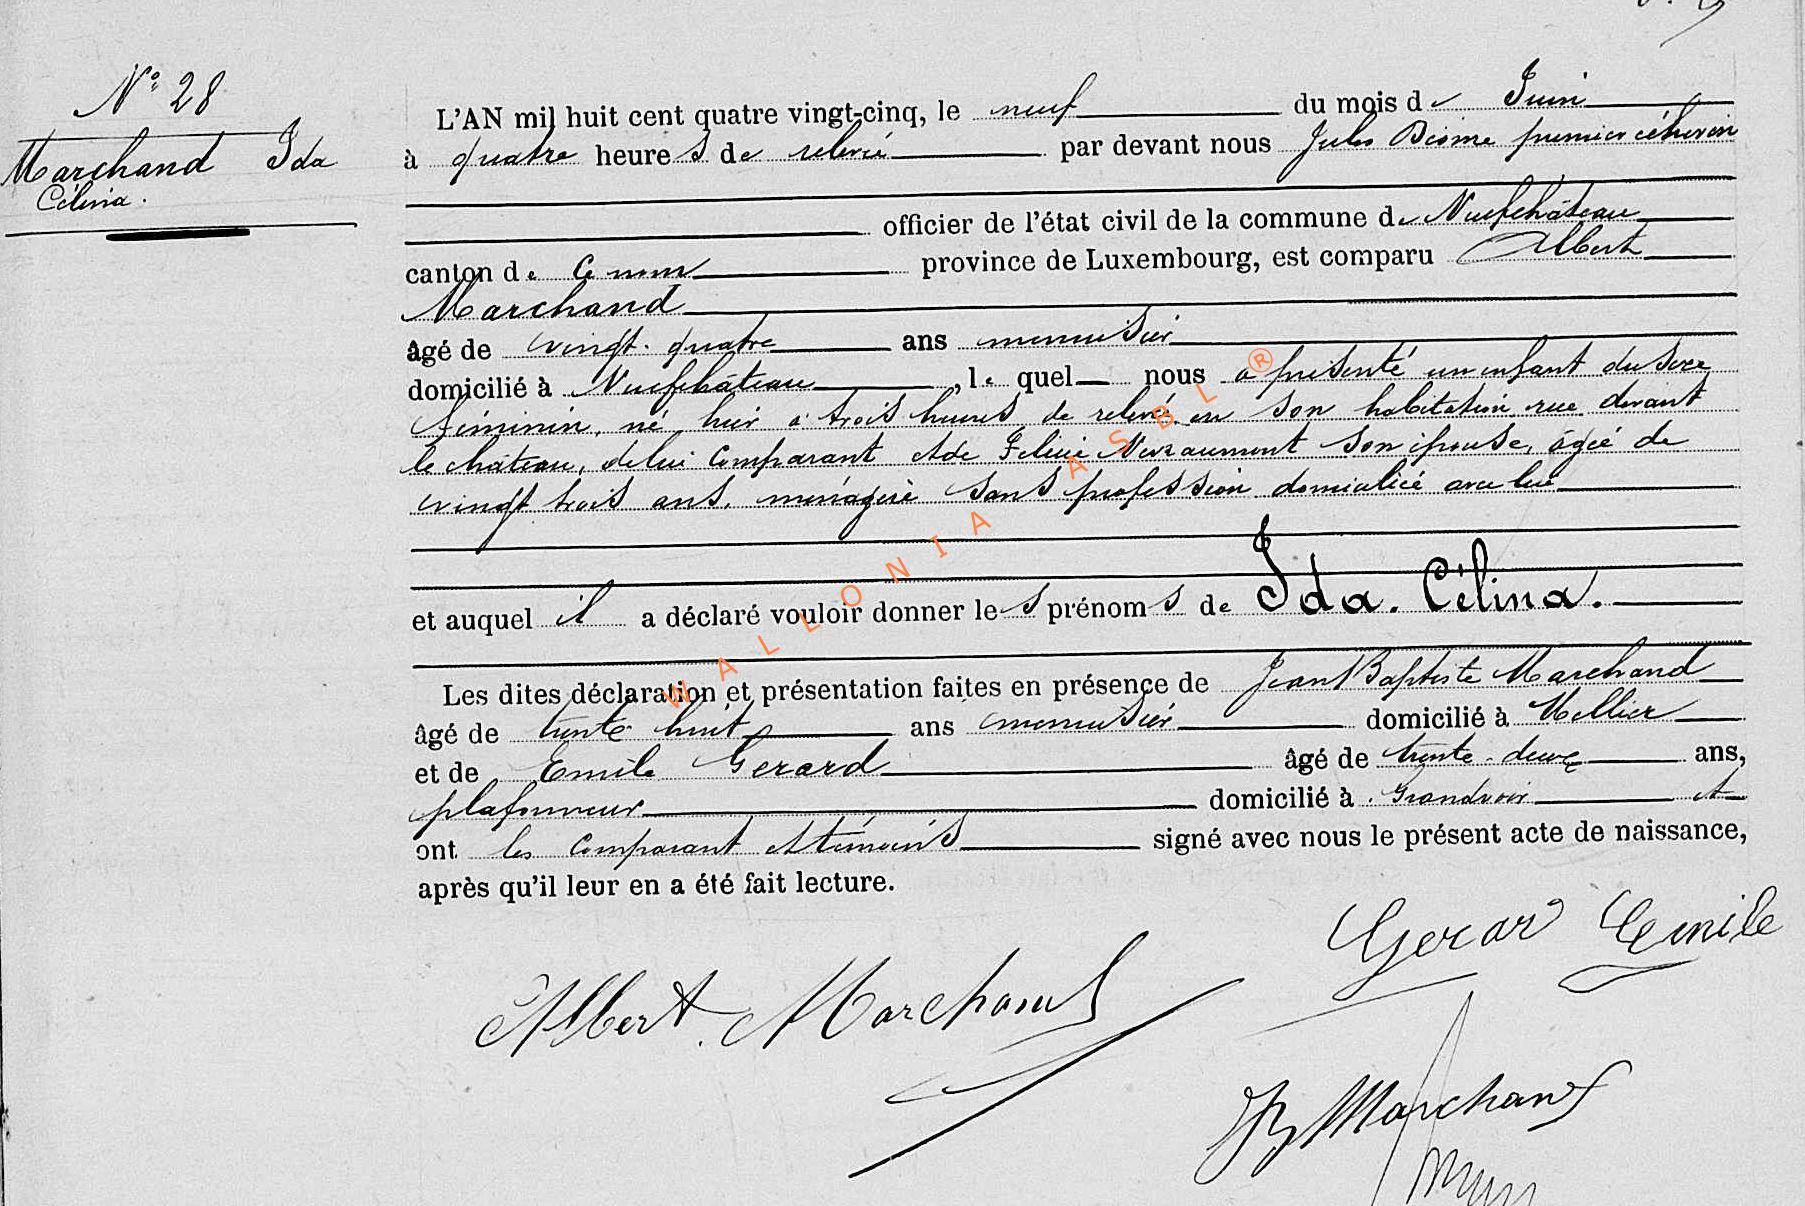 N° 28
Marchand Ida
Célina.
L'AN mil huit cent quatre vingt-cinq, le neuf du mois de Juin
à quatre heures de relevée par devant nous Jules premier échevin
officier de l'état civil de la commune de Neufchâteau
canton de ce nom province de Luxembourg, est comparu Albert
Marchand
âgé de vingt-quatre ans menuisier
domicilié à Neufchâteau, lequel nous a présenté un enfant du sexe
féminin, né hier à trois heures de relevée en son habitation rue devant
le château, de lui comparant et de Son épouse, âgée de
vingt trois ans, ménagère sans profession domiciliée avec lui
et auquel il a déclaré vouloir donner les prénoms de Ida. Célina.
Les dites déclaration et présentation faites en présence de Jean Baptiste Marchand
âgé de trente huit ans menuisier domicilié à Mellier
et de Emile Gerard âgé de trente-deux ans,
plafonneur domicilié à Grandvoir et
ont les comparant et témoins signé avec nous le présent acte de naissance,
après qu'il leur en a été fait lecture.
Gerard Emile
Albert Marchand
JB Marchand
WALLONIA ASBL ®